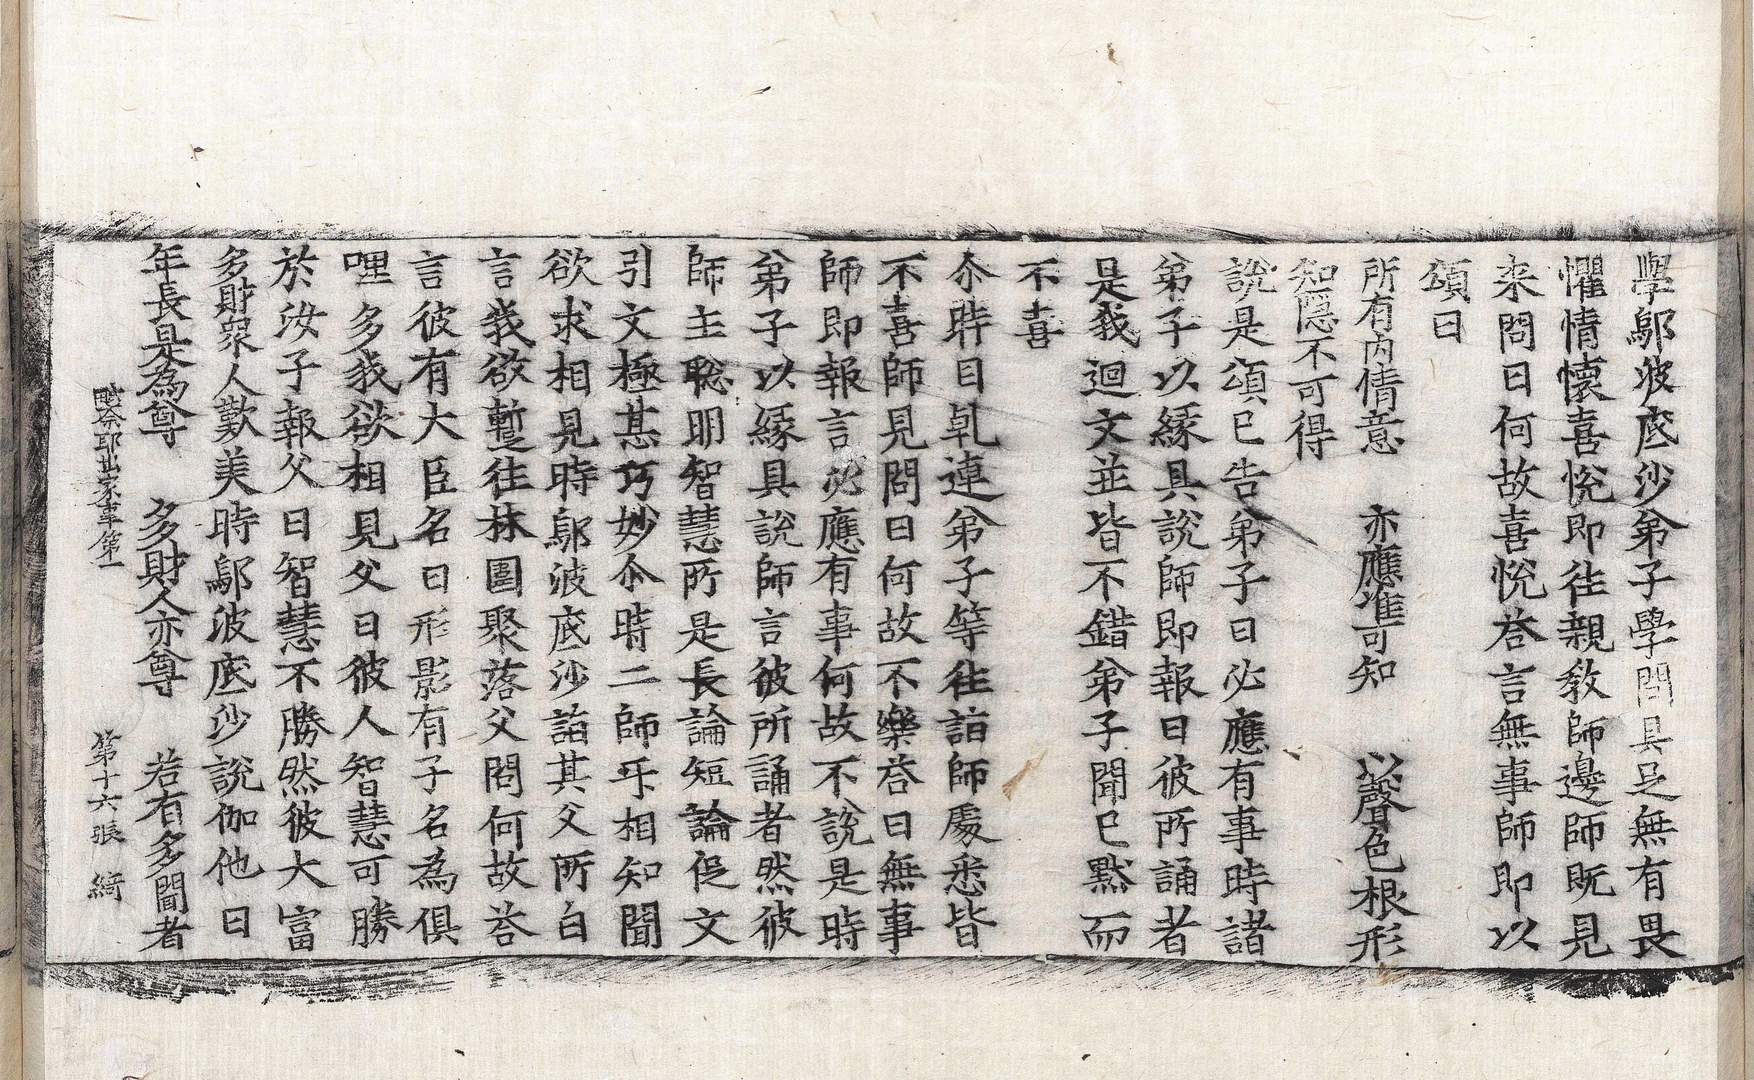 學鄔波底沙弟子學問具足無有畏
懼情懷喜悅即往親教師邊師既見
来問曰何故喜悅荅言無事師即以
頌曰
所有内情意　亦應准可知　以聲色根形
知隠不可得
說是頌已告弟子曰必應有事時諸
弟子以緣具說師即報曰彼所誦者
是我迴文並皆不錯弟子聞已黙而
不喜
尒時目乹連弟子等往詣師處悉皆
不喜師見問曰何故不樂荅曰無事
師即報言必應有事何故不說是時
弟子以緣具說師言彼所誦者然彼
師主聡明智慧所是長論短論促文
引文極甚巧妙尒時二師𠰥相知聞
欲求相見時鄔波底沙詣其父所白
言我欲暫往林圍聚落父問何故荅
言彼有大臣名曰形影有子名為俱
哩多我欲相見父曰彼人智慧可勝
於汝子報父曰智慧不勝然彼大富
多財眾人歎美時鄔波底沙說伽他曰
年長是為尊　多財人亦尊　若有多聞者
毗奈耶出家事第一　第十六張　綺